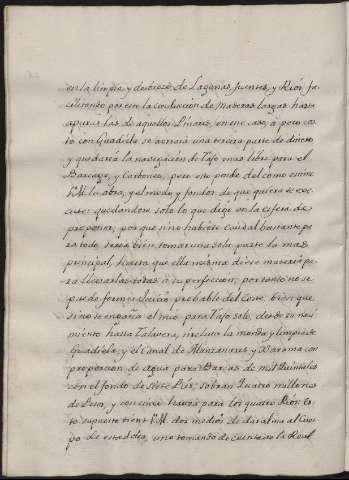 en la limpia y desbrozo de Lagunas, fuentes, y Rios, fa-
cilitando por este la conduccion de Maderas largas hasta
apurar las de aquellos Pinares, en cuio caso, à poco cos-
to con Guadiela se ahorrará una tercera parte de dinero
y quedaria la navegacion de Tajo mas libre para el
Barcage, y Carbones, pero esto pende del como estime
V.M. la obra, y el modo, y fondos de que quiera se exe-
cute: quedandose solo lo que digo en la esfera de
proponer, porque sino hubiere caudal bastante pa-
ra todo, sera bien tomar una sola parte la mas
principal, hasta que ella misma diese materia pa-
ra llevarlas todas à su perfeccion, por tanto no se
puede formar Juicio probable del Coste, bien que
sino se engaña el mio para Tajo solo, desde su naci-
miento hasta Talavera, inclusa la monda y limpia de
Guadiela; y el Canal de Manzanares y Xarama con
proporcion de agua para Barcas de mil Quintales
con el fondo de siete Pies, sobran Quatro millones
de Pesos, y con cinco havrá para los quatro Rios. Es-
to supuesto tiene V.M. dos medios de daralma al Cuer-
po de esta idea, uno tomando de cuenta de la Real